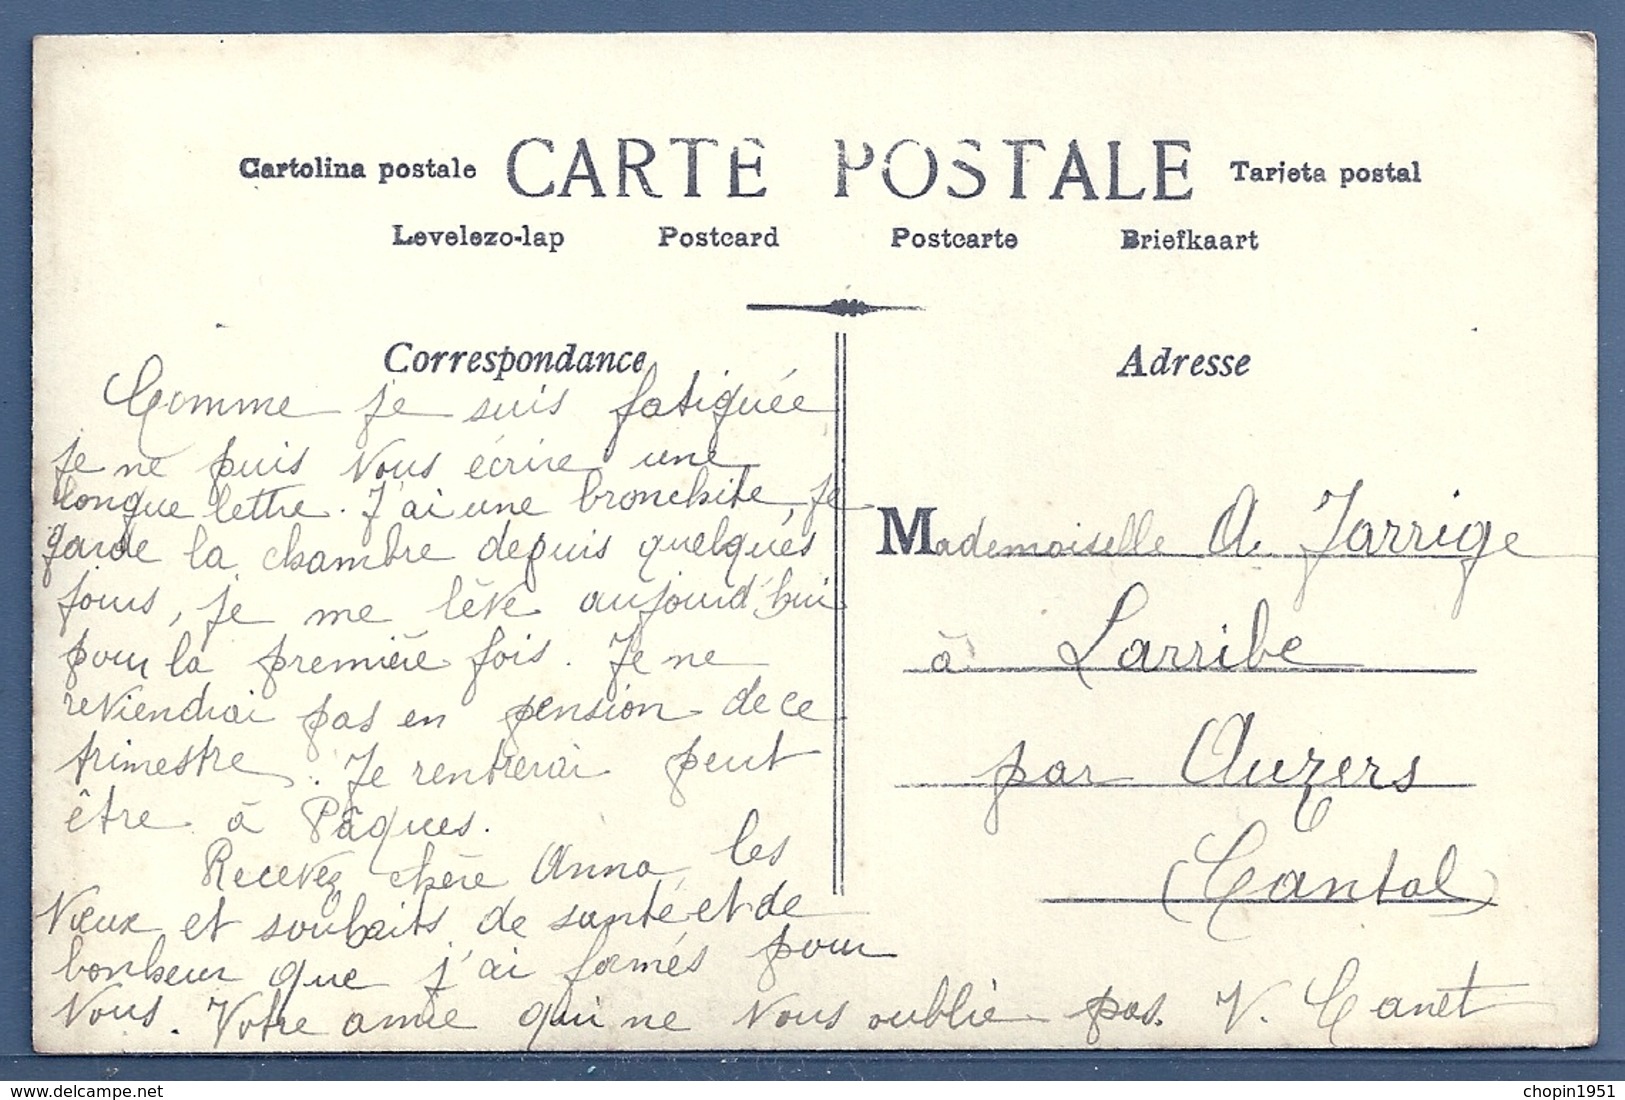 Cartolina postale CARTE POSTALE Tarjeta postal
Levelezo-lap Postcard Postcarte Briefkaart
Correspondance
Comme je suis fatiguée
je ne puis vous écrire une
longue lettre. J'ai une bronchite, je
garde la chambre depuis quelques
jours, je me lève aujourd'hui
pour la première fois. Je ne
reviendrai pas en pension de ce
trimestre. Je rentrerai peut
être à Pâques.
Recevez chère Anna, les
vœux et souhaits de santé et de
bonheur que j'ai formés pour
vous. Votre amie qui ne vous oublie pas. V. Canet
Adresse
Mademoiselle A. Jarrige
à Larribe
par Auzers
(Cantal)
delcampe.net
chopin1951